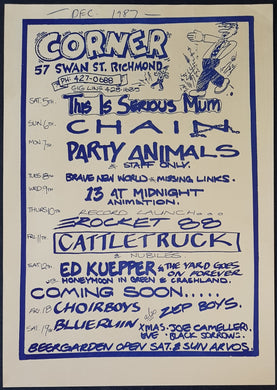 DEC. 1987
CORNER
57 SWAN ST. RICHMOND
PH: 427-0688
GIG LINE 428-1685
SAT. 5TH. This Is Serious Mum
SUN. 6TH. CHAIN
MON 7TH PARTY ANIMALS
& STAFF ONLY.
TUES 8TH BRAVE NEW WORLD & MISSING LINKS.
WED. 9TH 13 AT MIDNIGHT
ANIMATION.
THURS 10TH RECORD LAUNCH...
ROCKET 88
FRI. 11TH CATTLETRUCK
& NUBILES
SAT. 12TH ED KUEPPER & THE YARD GOES ON FOREVER
HONEYMOON IN GREEN & CRASHLAND.
COMING SOON.....
FRI. 18 CHOIRBOYS also ZEP BOYS.
SAT. 19TH BLUERUIN XMAS EVE - JOE CAMELLERI BLACK SORROWS
BEERGARDEN OPEN SAT. & SUN ARVOS.